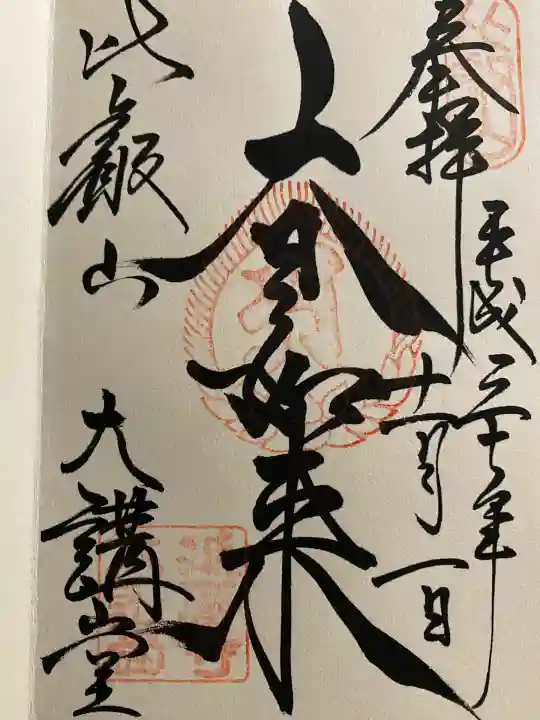 奉拝
平成三十年
十一月一日
大日如来
比叡山 大講堂